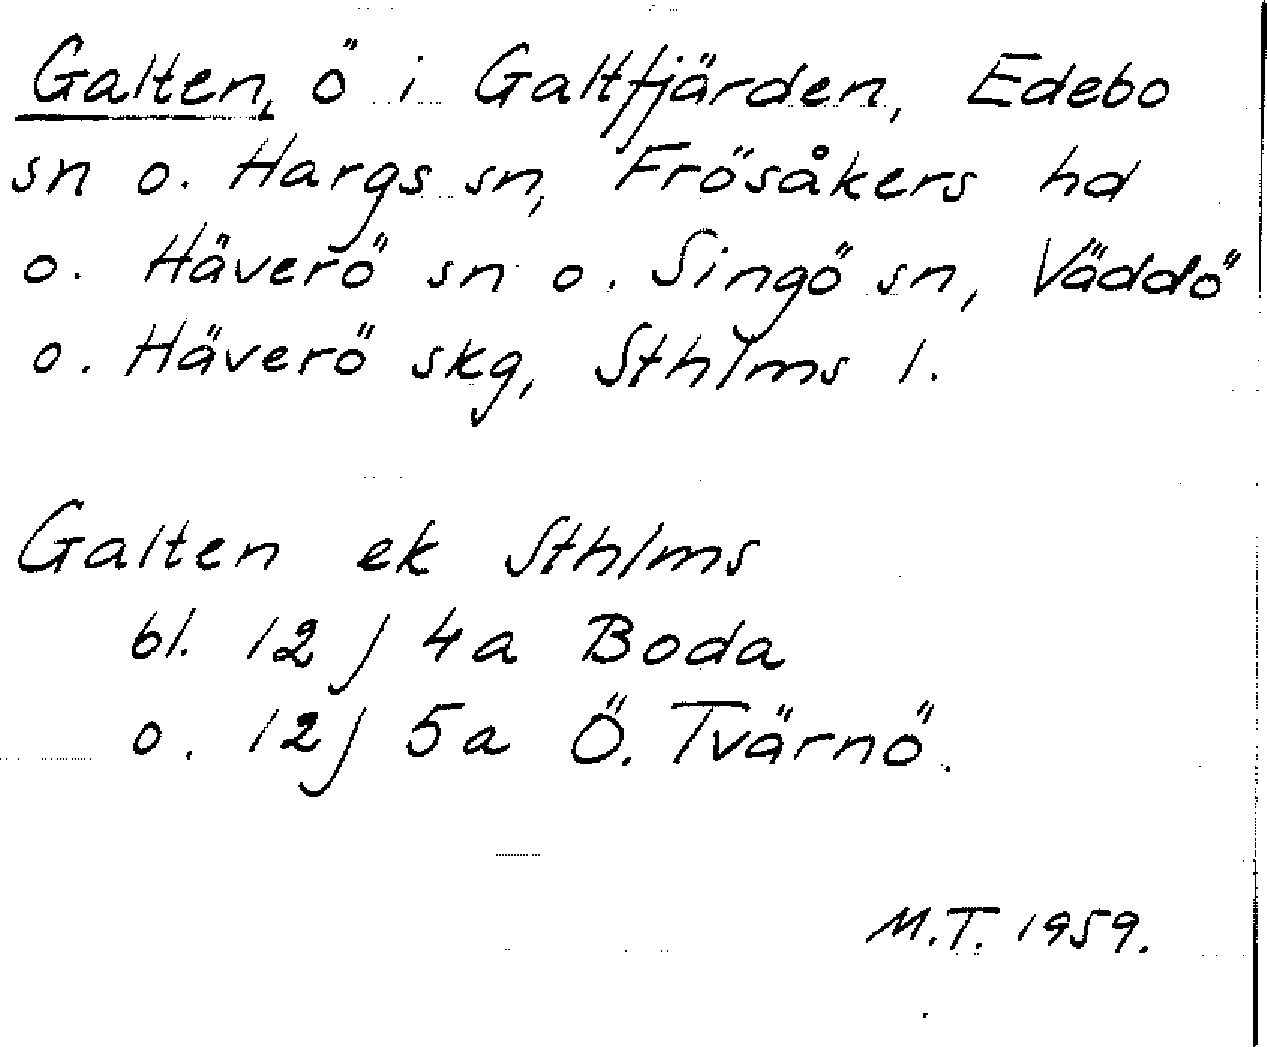 Galten, ö i Galtfjärden, Edebo
sn o. Hargs sn, Frösåkers hd
o. Häverö sn o. Singö sn, Väddö
o. Häverö skg, Sthlms l.
Galten ek Sthlms
bl. 12 j 4a Boda
o. 12j 5a Ö. Tvärnö.
M.T. 1959.